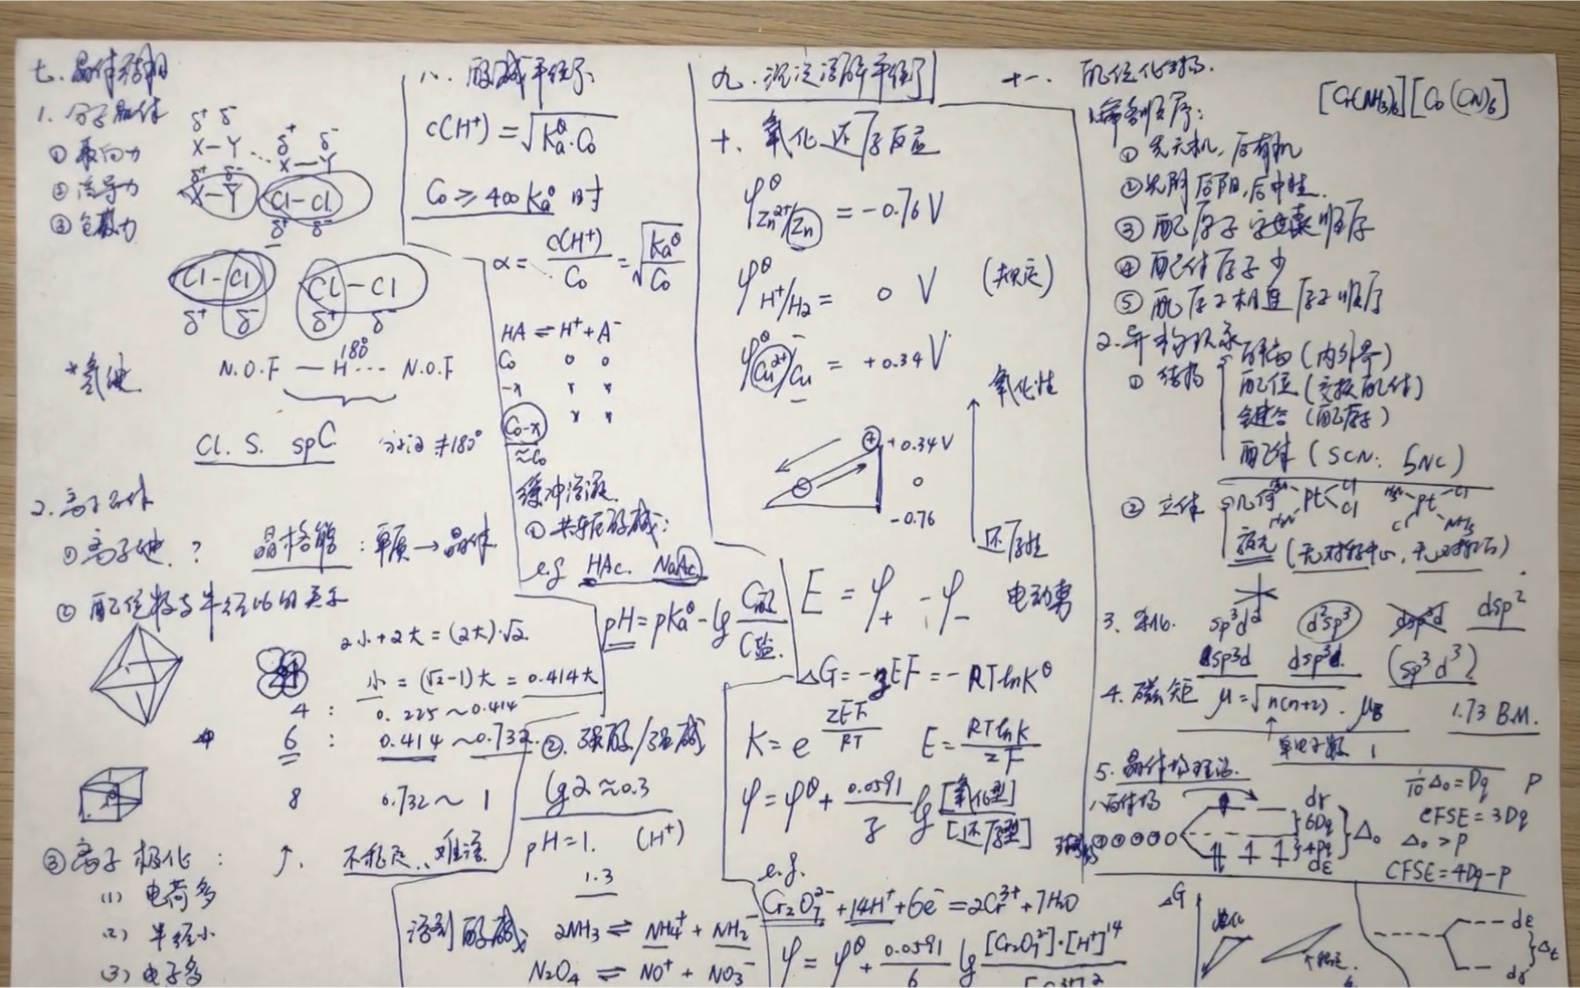 七、晶体结构
1. 分子晶体
① 取向力
② 诱导力
③ 色散力
δ⁺ δ⁻
X-Y ... X-Y
δ⁺ δ⁻
X-Y Cl-Cl
δ⁺ δ⁻
Cl-Cl Cl-Cl
δ⁺ δ⁻ δ⁺ δ⁻
*氢键 N.O.F — H ... N.O.F
180°
Cl. S. spC ≠180°
2. 离子晶体
① 离子键 ? 晶格能: 单质→晶体
② 配位数与半径比的关系
2小+2大=(2大)·√2
小=(√2-1)大=0.414大
4: 0.225~0.414
6: 0.414~0.732
8 0.732~1
③ 离子极化: ↑. 不稳定、难溶
(1) 电荷多
(2) 半径小
(3) 电子多
八、酸碱平衡
c(H⁺)=√(Ka^θ·C₀)
C₀≥400Ka^θ 时
α=c(H⁺)/C₀=√(Ka^θ/C₀)
HA⇌H⁺+A⁻
C₀ 0 0
-x x x
C₀-x x x
≈C₀
缓冲溶液
① 共轭酸碱:
e.g HAc. NaAc
pH=pKa^θ-lg C酸/C盐
② 强酸/强碱
lg2≈0.3
pH=1. (H⁺)
1.3
溶剂酸碱
2NH₃⇌NH₄⁺+NH₂⁻
N₂O₄⇌NO⁺+NO₃⁻
九、沉淀溶解平衡
十、氧化还原反应
φ^θ Zn²⁺/Zn=-0.76V
φ^θ H⁺/H₂=0 V (规定)
φ^θ Cu²⁺/Cu=+0.34V
氧化性
+0.34V
0
-0.76
还原性
E=φ₊-φ₋ 电动势
ΔG=-zEF=-RTlnK^θ
K=e^(zEF/RT) E=RTlnK/zF
φ=φ^θ+0.0591/z lg [氧化型]/[还原型]
e.g.
Cr₂O₇²⁻+14H⁺+6e⁻=2Cr³⁺+7H₂O
φ=φ^θ+0.0591/6 lg [Cr₂O₇²⁻]·[H⁺]¹⁴
十一、配位化学
[Cr(NH₃)₆][Co(CN)₆]
1. 命名顺序:
① 先无机,后有机
② 先阴后阳,后中性.
③ 配原子字母表顺序
④ 配体原子少
⑤ 配原子相连原子顺序
2. 异构现象
① 结构
解离(内外界)
配位(交换配体)
键合(配原子)
配体(SCN: SNC)
② 立体
几何
H₃N Pt Cl
H₃N Cl
H₃N Pt Cl
Cl NH₃
旋光(无对称中心,无对称面)
3. 杂化. sp³d² d²sp³ dsp³d dsp²
dsp³d dsp³d. (sp³d³)
4. 磁矩 μ=√n(n+2).μB 1.73 B.M.
单电子数 1
5. 晶体场理论.
八面体场
dγ
6Dq
4Dq
dε
Δ₀
1/10 Δ₀=Dq P
CFSE=3Dq
Δ₀>P
CFSE=4Dq-P
ΔG
dε
Δt
dγ